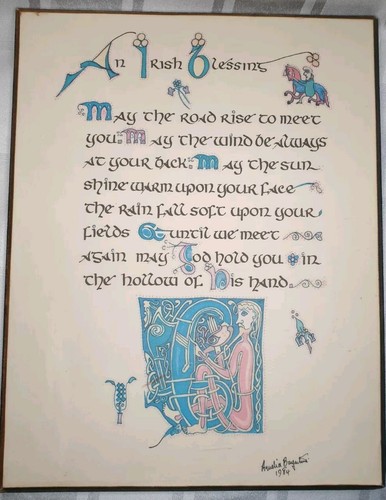 An Irish Blessing
May the road rise to meet
you: May the wind be always
at your back: May the sun
shine warm upon your face
the rain fall soft upon your
fields & until we meet
again may God hold you in
the hollow of His hand.
1984